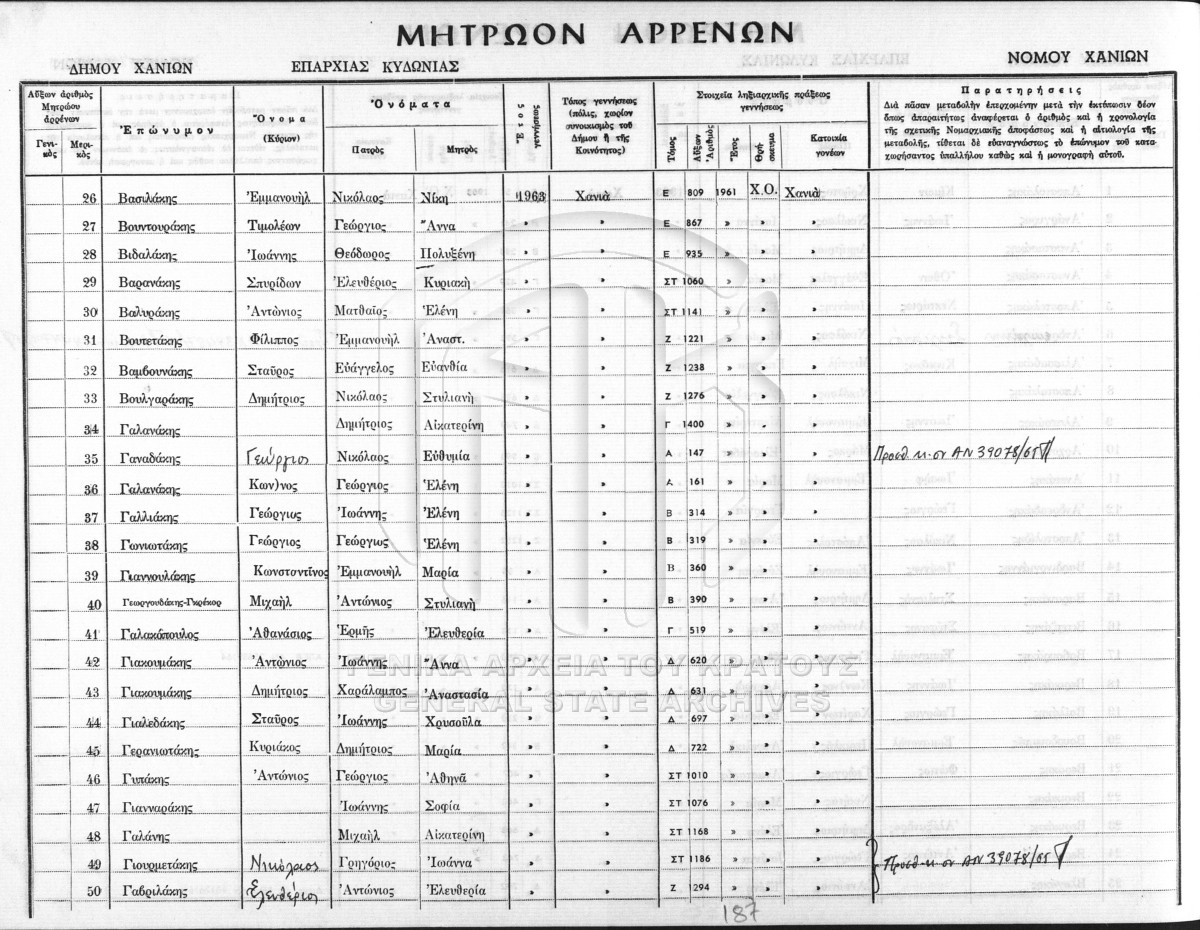 ΜΗΤΡΩΟΝ ΑΡΡΕΝΩΝ
ΔΗΜΟΥ ΧΑΝΙΩΝ ΕΠΑΡΧΙΑΣ ΚΥΔΩΝΙΑΣ ΝΟΜΟΥ ΧΑΝΙΩΝ
Αὔξων ἀριθμὸς Μητρώου ἀρρένων Γενικὸς Μερικὸς Ἐπώνυμον Ὄνομα (Κύριον) Ὀνόματα Πατρὸς Μητρὸς Ἔτος γεννήσεως Τόπος γεννήσεως (πόλις, χωρίον συνοικισμὸς τοῦ Δήμου ἢ τῆς Κοινότητος) Στοιχεῖα ληξιαρχικῆς πράξεως γεννήσεως Τόμος Αὔξων Ἀριθμὸς Ἔτος Θρήσκευμα Κατοικία γονέων
Παρατηρήσεις
Διὰ πᾶσαν μεταβολὴν ἐπερχομένην μετὰ τὴν ἐκτύπωσιν δέον
ὅπως ἀπαραιτήτως ἀναφέρεται ὁ ἀριθμὸς καὶ ἡ χρονολογία
τῆς σχετικῆς Νομαρχιακῆς ἀποφάσεως καὶ ἡ αἰτιολογία τῆς
μεταβολῆς, τίθεται δὲ εὐαναγνώστως τὸ ἐπώνυμον τοῦ κατα-
χωρήσαντος ὑπαλλήλου καθὼς καὶ ἡ μονογραφὴ αὐτοῦ.
26 Βασιλάκης Ἐμμανουὴλ Νικόλαος Νίκη 1963 Χανιὰ Ε 809 1961 Χ.Ο. Χανιὰ
27 Βουντουράκης Τιμολέων Γεώργιος Ἄννα » » Ε 867 » » »
28 Βιδαλάκης Ἰωάννης Θεόδωρος Πολυξένη » » Ε 935 » » »
29 Βαρανάκης Σπυρίδων Ἐλευθέριος Κυριακὴ » » ΣΤ 1060 » » »
30 Βαλυράκης Ἀντώνιος Ματθαῖος Ἑλένη » » ΣΤ 1141 » » »
31 Βουτετάκης Φίλιππος Ἐμμανουὴλ Ἀναστ. » » Ζ 1221 » » »
32 Βαμβουνάκης Σταῦρος Εὐάγγελος Εὐανθία » » Ζ 1238 » » »
33 Βουλγαράκης Δημήτριος Νικόλαος Στυλιανὴ » » Ζ 1276 » » »
34 Γαλανάκης Δημήτριος Αἰκατερίνη » » Γ 1400 » » »
35 Γαναδάκης Γεώργιος Νικόλαος Εὐθυμία » » Α 147 » » » Προσθ. ΑΝ 39078/65
36 Γαλανάκης Κων)νος Γεώργιος Ἑλένη » » Α 161 » » »
37 Γαλλιάκης Γεώργιος Ἰωάννης Ἑλένη » » Β 314 » » »
38 Γωνιωτάκης Γεώργιος Γεώργιος Ἑλένη » » Β 319 » » »
39 Γιαννουλάκης Κωνσταντῖνος Ἐμμανουὴλ Μαρία » » Β 360 » » »
40 Γεωργουδάκης-Γκρέκορ Μιχαὴλ Ἀντώνιος Στυλιανὴ » » Β 390 » » »
41 Γαλακόπουλος Ἀθανάσιος Ἑρμῆς Ἐλευθερία » » Γ 519 » » »
42 Γιακουμάκης Ἀντώνιος Ἰωάννης Ἄννα » » Δ 620 » » »
43 Γιακουμάκης Δημήτριος Χαράλαμπος Ἀναστασία » » Δ 631 » » »
44 Γιαλεδάκης Σταῦρος Ἰωάννης Χρυσοῦλα » » Δ 697 » » »
45 Γερανιωτάκης Κυριάκος Δημήτριος Μαρία » » Δ 722 » » »
46 Γυπάκης Ἀντώνιος Γεώργιος Ἀθηνᾶ » » ΣΤ 1010 » » »
47 Γιανναράκης Ἰωάννης Σοφία » » ΣΤ 1076 » » »
48 Γαλάνης Μιχαὴλ Αἰκατερίνη » » ΣΤ 1168 » » »
49 Γιουρμετάκης Νικόλαος Γρηγόριος Ἰωάννα » » ΣΤ 1186 » » » Προσθ. ΑΝ 39078/65
50 Γαβριλάκης Ἐλευθέριος Ἀντώνιος Ἐλευθερία » » Ζ 1294 » » »
187
ΓΕΝΙΚΑ ΑΡΧΕΙΑ ΤΟΥ ΚΡΑΤΟΥΣ
GENERAL STATE ARCHIVES